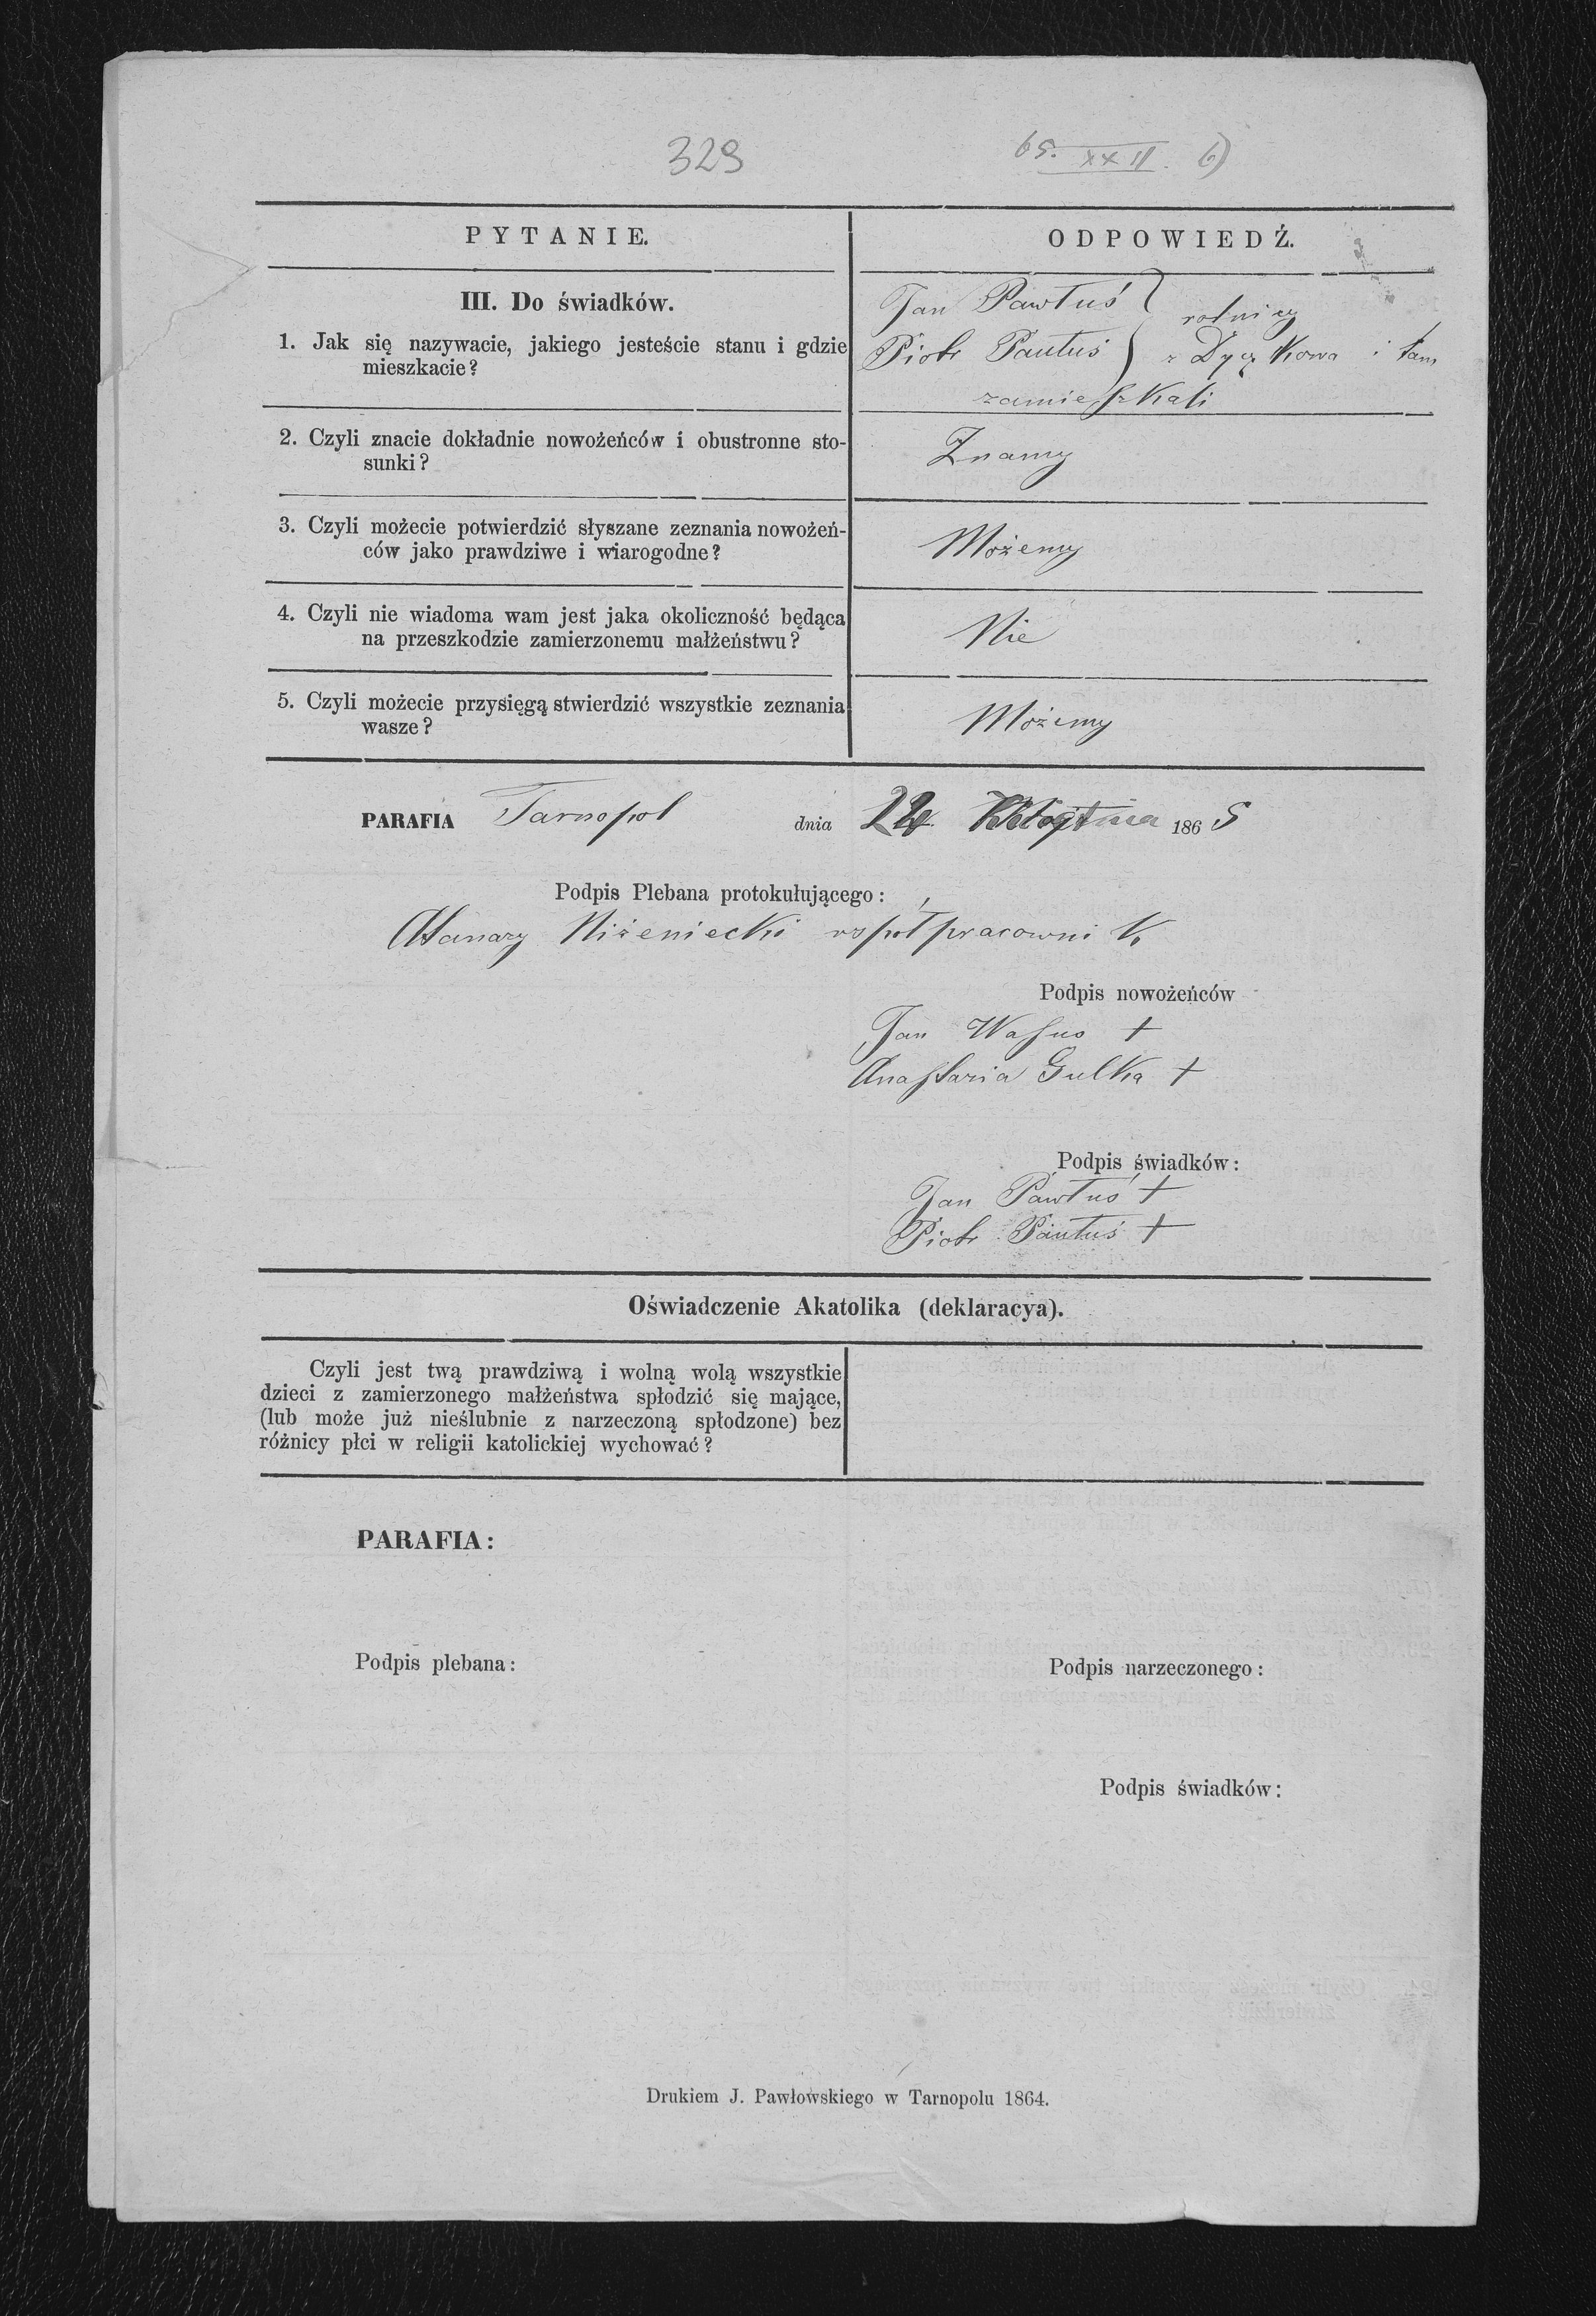 329
65. XXII. 6)
PYTANIE.
ODPOWIEDŹ.
III. Do świadków.
1. Jak się nazywacie, jakiego jesteście stanu i gdzie
mieszkacie?
Jan Pawłuś } rolnicy
Piotr Pautuś } z Dyczkowa i tam
zamieszkali
2. Czyli znacie dokładnie nowożeńców i obustronne sto-
sunki?
Znamy
3. Czyli możecie potwierdzić słyszane zeznania nowożeń-
ców jako prawdziwe i wiarogodne?
Możemy
4. Czyli nie wiadoma wam jest jaka okoliczność będąca
na przeszkodzie zamierzonemu małżeństwu?
Nie
5. Czyli możecie przysięgą stwierdzić wszystkie zeznania
wasze?
Możemy
PARAFIA Tarnopol dnia 1865
Podpis Plebana protokułującego:
Niżeniecki współpracownik
Podpis nowożeńców
Jan Wasuo +
Anastazia Gulka +
Podpis świadków:
Jan Pawłuś +
Piotr Pautuś +
Oświadczenie Akatolika (deklaracya).
Czyli jest twą prawdziwą i wolną wolą wszystkie
dzieci z zamierzonego małżeństwa spłodzić się mające,
(lub może już nieślubnie z narzeczoną spłodzone) bez
różnicy płci w religii katolickiej wychować?
PARAFIA:
Podpis plebana:
Podpis narzeczonego:
Podpis świadków:
Drukiem J. Pawłowskiego w Tarnopolu 1864.